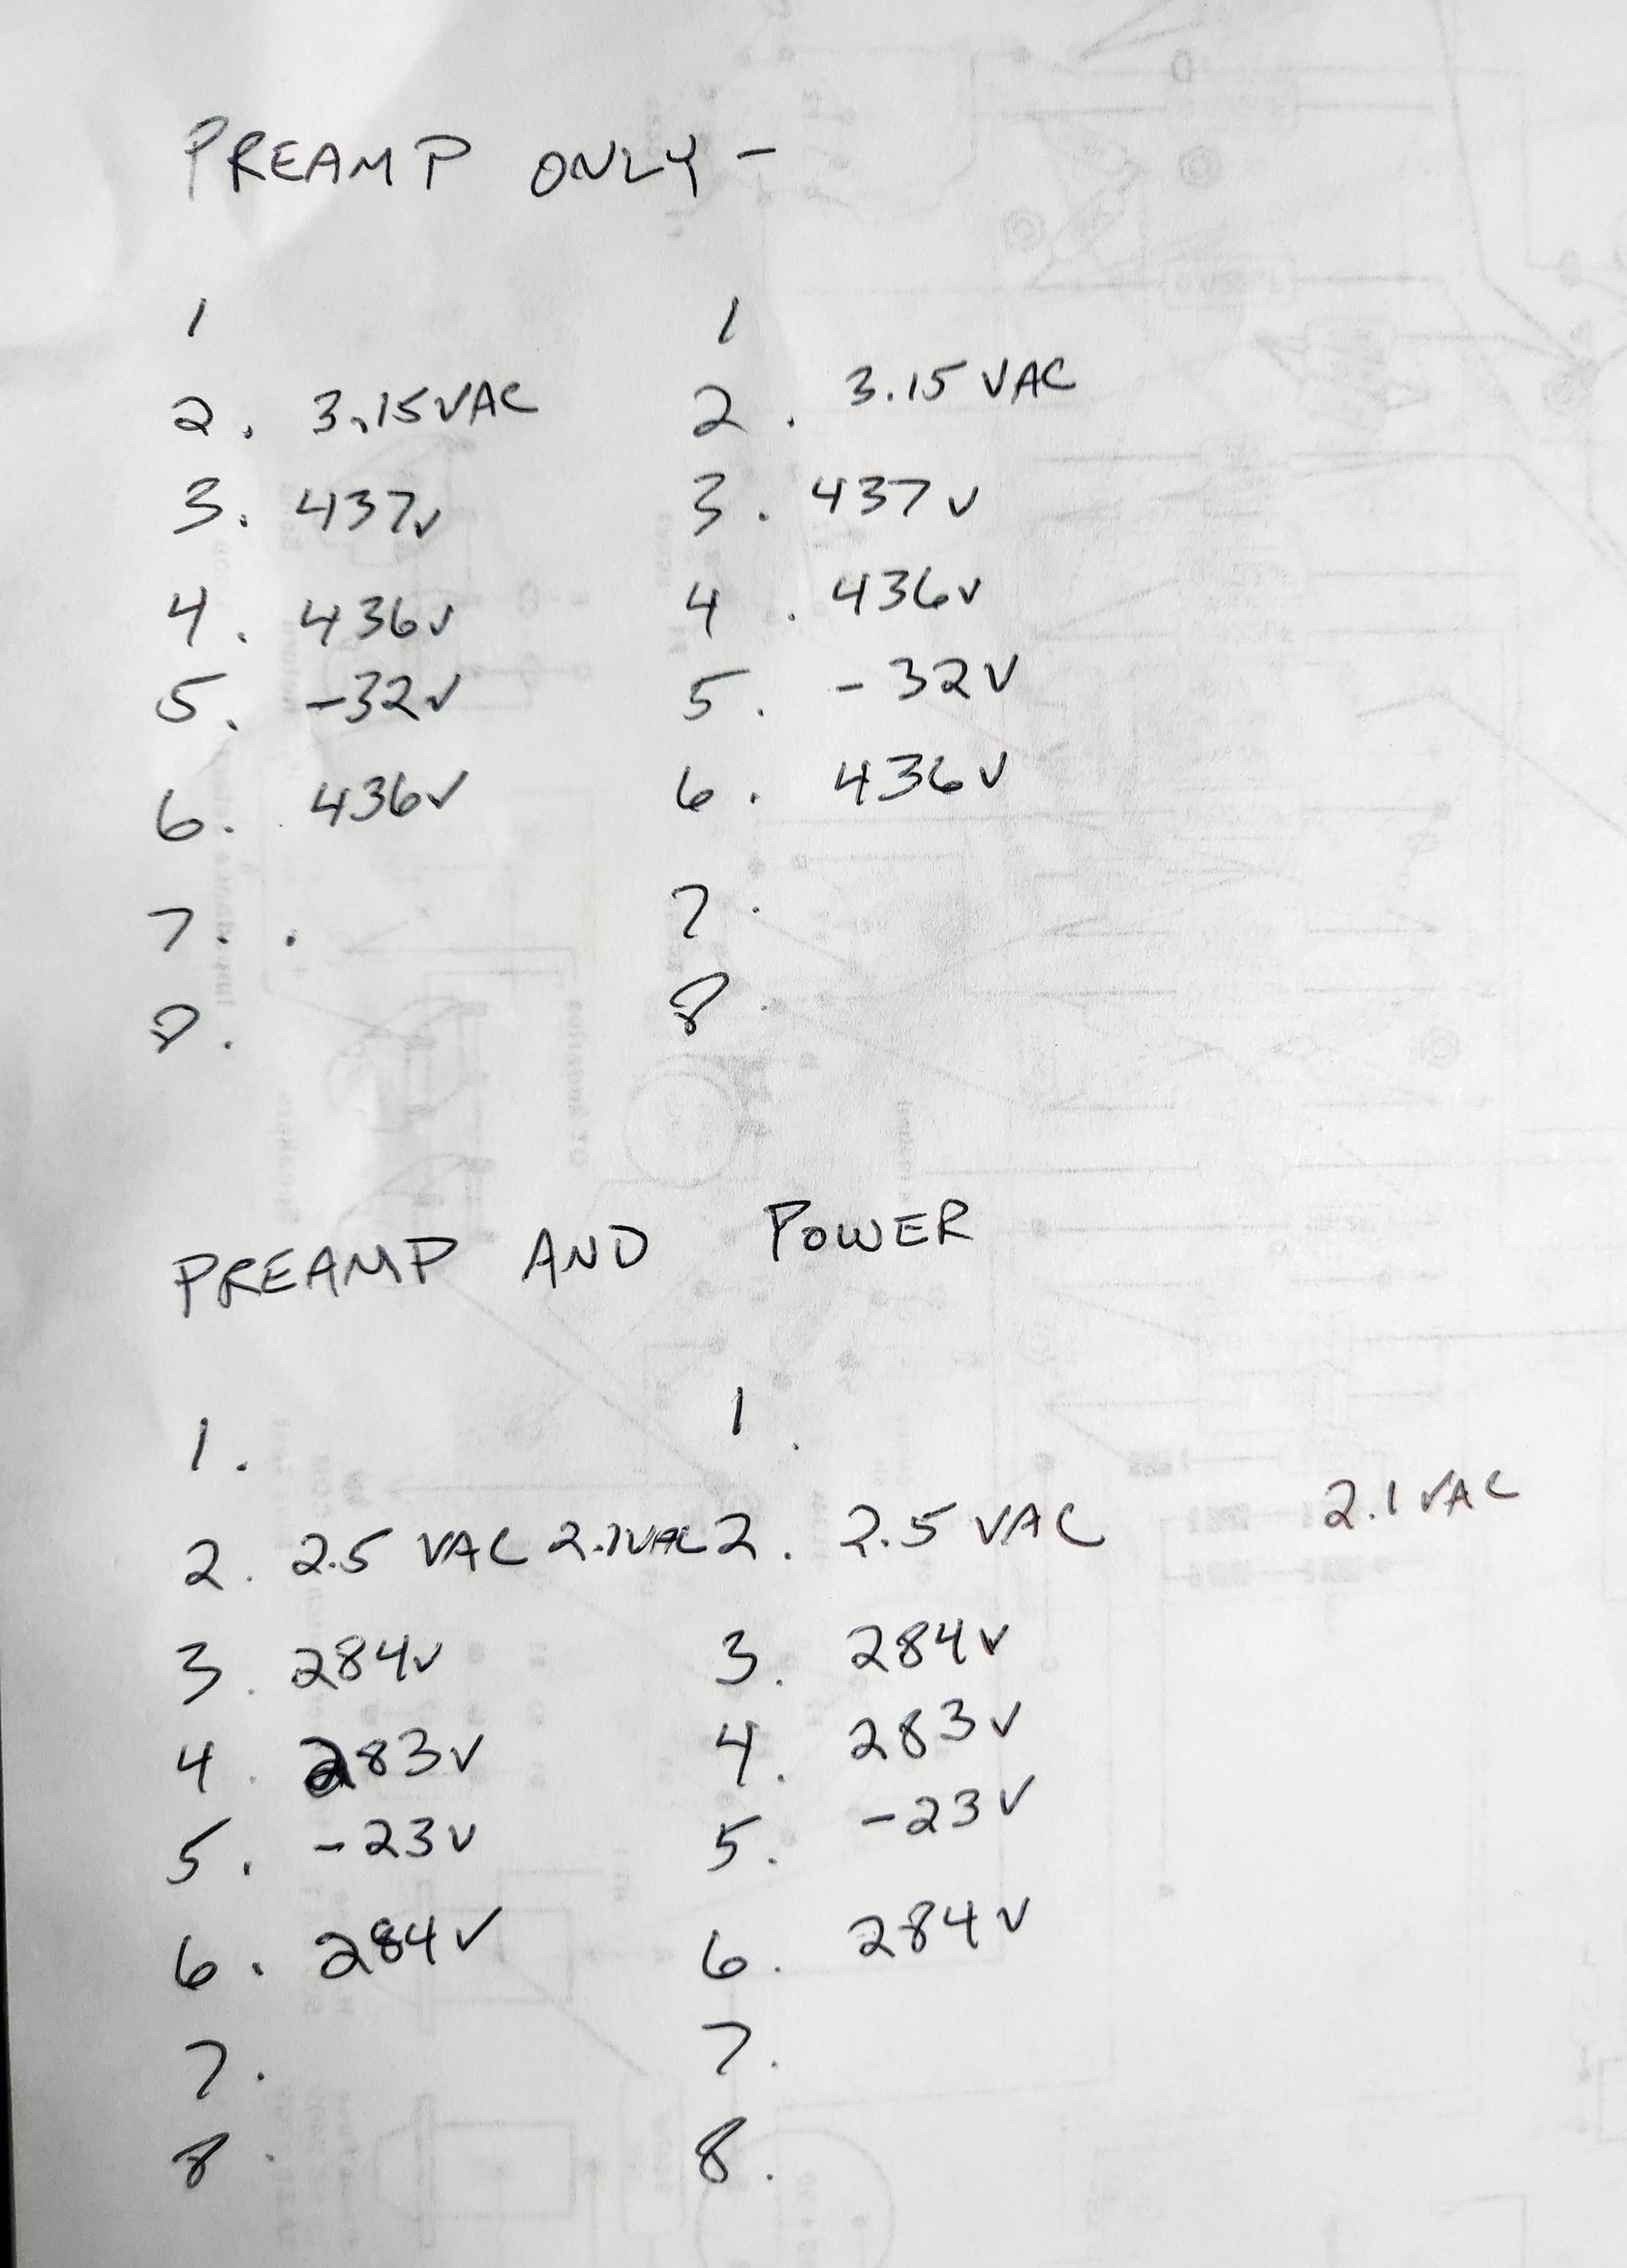 PREAMP ONLY -
1 1
2. 3.15VAC 2. 3.15 VAC
3. 437v 3. 437v
4. 436v 4. 436v
5. -32v 5. -32V
6. 436v 6. 436V
7. 7.
8. 8.
PREAMP AND POWER
1. 1.
2. 2.5 VAC 2.1VAC 2. 2.5 VAC 2.1 VAC
3. 284v 3. 284v
4. 283v 4. 283v
5. -23v 5. -23V
6. 284v 6. 284v
7. 7.
8. 8.